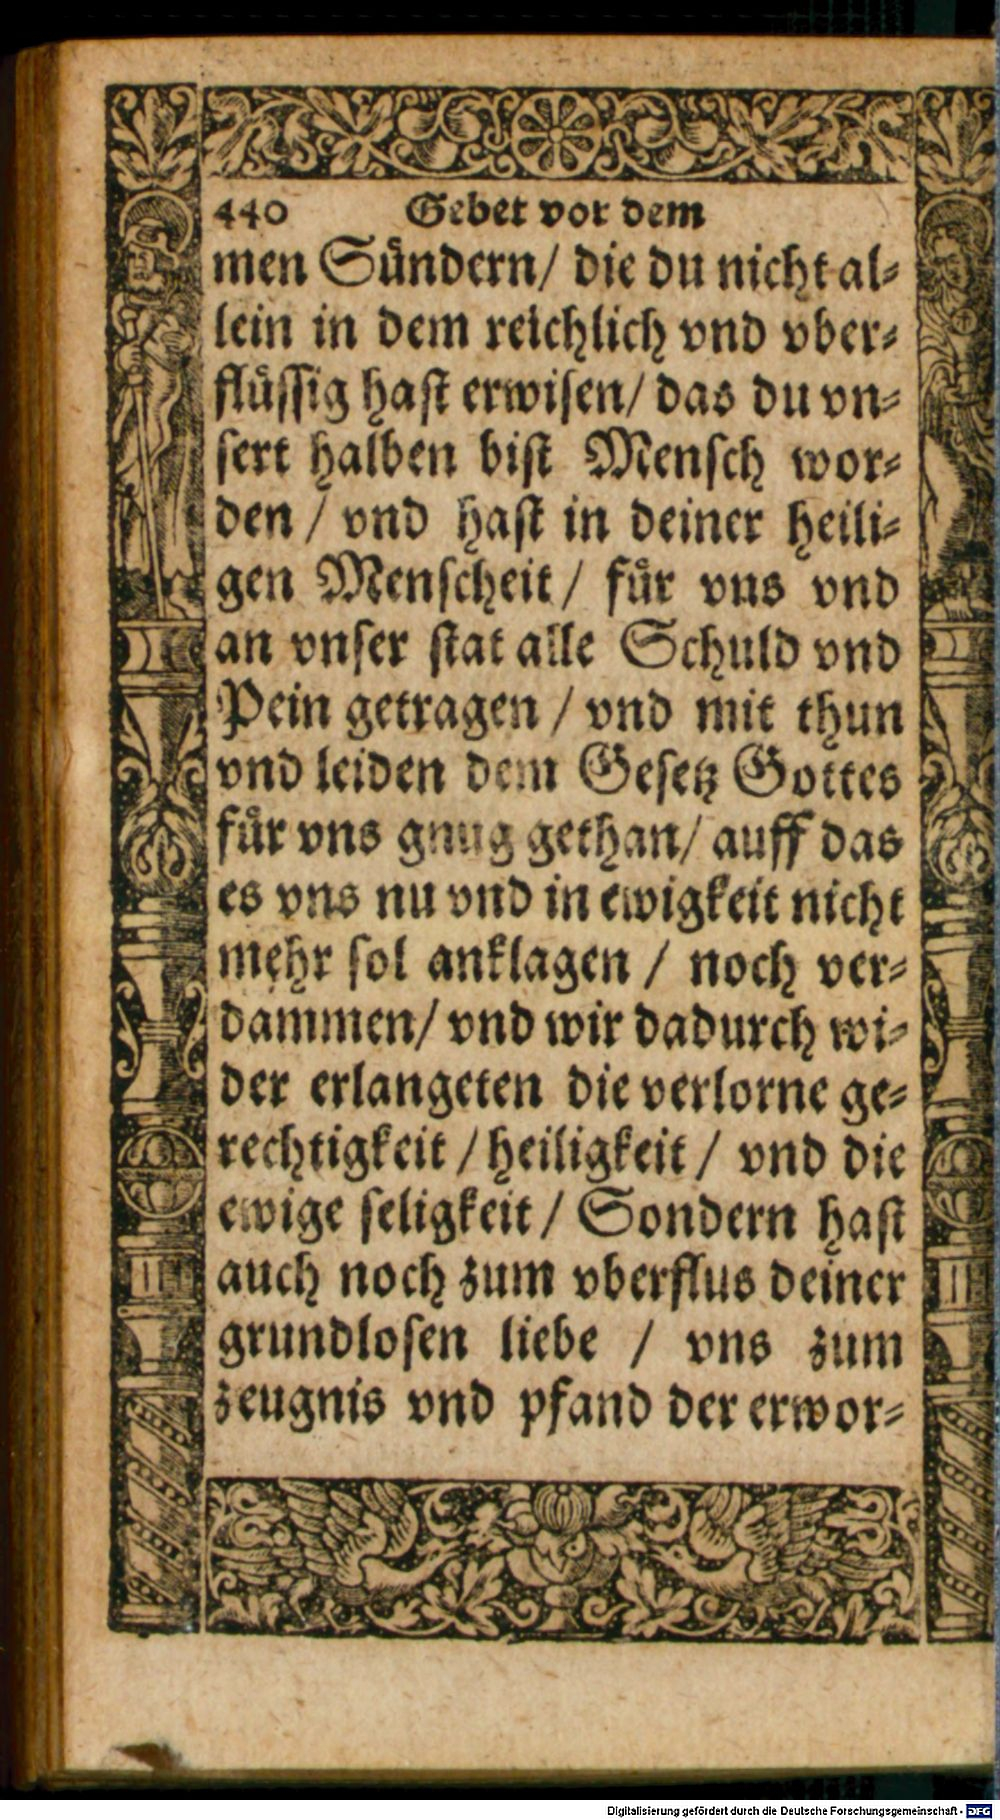 440 Gebet vor dem
men Sündern/ die du nicht al⸗
lein in dem reichlich vnd vber⸗
flüssig hast erwisen/ das du vn⸗
sert halben bist Mensch wor⸗
den / vnd hast in deiner heili⸗
gen Menscheit / für vns vnd
an vnser stat alle Schuld vnd
Pein getragen / vnd mit thun
vnd leiden dem Gesetz Gottes
für vns gnug gethan/ auff das
es vns nu vnd in ewigkeit nicht
mehr sol anklagen / noch ver⸗
dammen/ vnd wir dadurch wi⸗
der erlangeten die verlorne ge⸗
rechtigkeit / heiligkeit / vnd die
ewige seligkeit / Sondern hast
auch noch zum vberflus deiner
grundlosen liebe / vns zum
zeugnis vnd pfand der erwor⸗
Digitalisierung gefördert durch die Deutsche Forschungsgemeinschaft - DFG